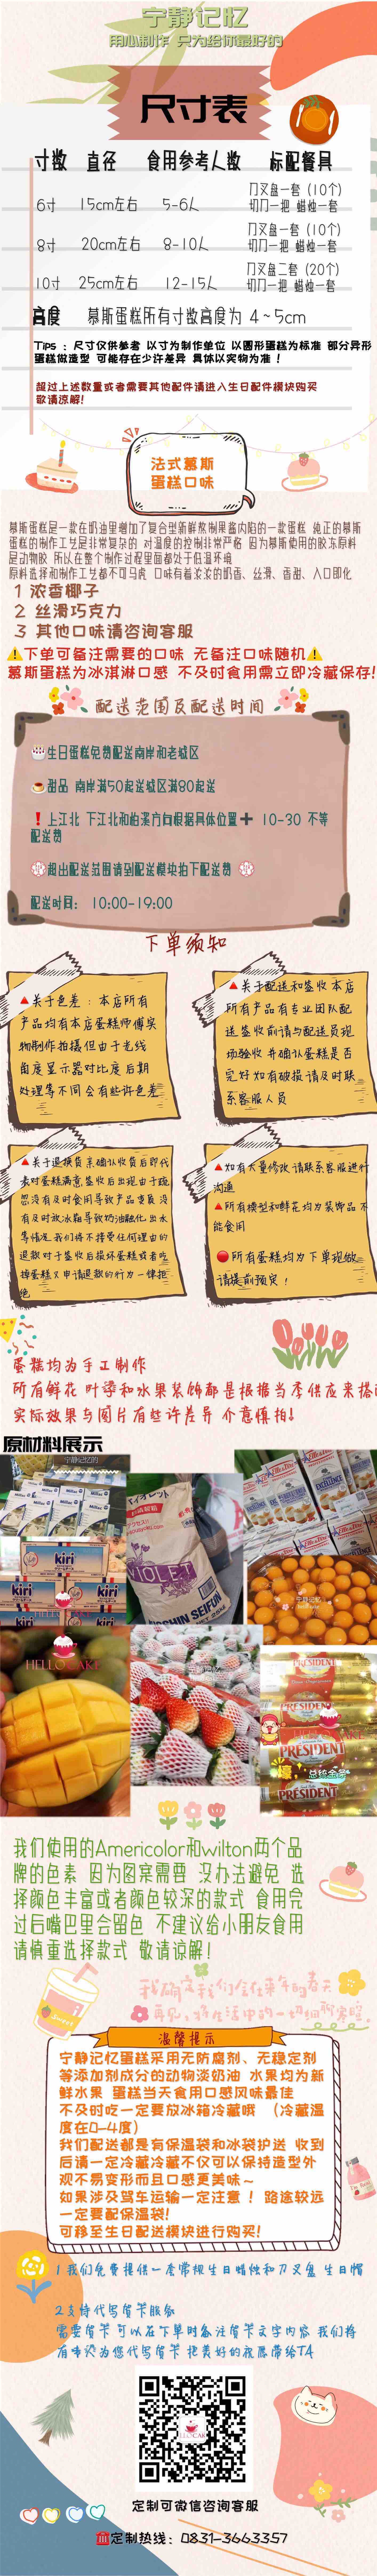 宁静记忆
用心制作 只为给你最好的
尺寸表
寸数 直径 食用参考人数 标配餐具
6寸 15cm左右 5-6人 刀叉盘一套（10个）
切刀一把 蜡烛一套
8寸 20cm左右 8-10人 刀叉盘一套（10个）
切刀一把 蜡烛一套
10寸 25cm左右 12-15人 刀叉盘二套（20个）
切刀一把 蜡烛一套
高度 慕斯蛋糕所有寸数高度为 4~5cm
Tips：尺寸仅供参考 以寸为制作单位 以圆形蛋糕为标准 部分异形
蛋糕做造型 可能存在少许差异 具体以实物为准！
超过上述数量或者需要其他配件请进入生日配件模块购买
敬请谅解！
法式慕斯
蛋糕口味
慕斯蛋糕是一款在奶油里增加了复合型新鲜熬制果酱内陷的一款蛋糕 纯正的慕斯
蛋糕的制作工艺是非常复杂的 对温度的控制非常严格 因为慕斯使用的胶冻原料
是动物胶 所以在整个制作过程里面都处于低温环境
原料选择和制作工艺都不可马虎 口味有着浓浓的奶香、丝滑、香甜、入口即化
1 浓香椰子
2 丝滑巧克力
3 其他口味请咨询客服
⚠下单可备注需要的口味 无备注口味随机⚠
慕斯蛋糕为冰淇淋口感 不及时食用需立即冷藏保存！
配送范围及配送时间
生日蛋糕免费配送南岸和老城区
甜品 南岸满50起送城区满80起送
❗上江北 下江北和柏溪方向根据具体位置➕ 10-30 不等
配送费
超出配送范围请到配送模块拍下配送费
配送时间： 10:00-19:00
下单须知
🔺关于色差：本店所有
产品均有本店蛋糕师傅实
物制作拍摄但由于光线
角度显示器对比度后期
处理等不同会有些许色差
🔺关于配送和签收本店
所有产品有专业团队配
送签收前请与配送员现
场验收 并确认蛋糕是否
完好如有破损请及时联
系客服人员
🔺关于退换货亲确认收货后即代
表对蛋糕满意签收后出现由于疏
忽没有及时食用导致产品变质没
有及时放冰箱导致奶油融化出水
等情况我们将不接受任何理由的
退款对于签收后损坏蛋糕或者吃
掉蛋糕又申请退款的行为一律拒
绝
🔺如有大量修改请联系客服进行
沟通
🔺所有模型和鲜花均为装饰品不
能食用
🔴所有蛋糕均为下单现做
请提前预定！
蛋糕均为手工制作
所有鲜花 叶子和水果装饰都是根据当季供应来搭配
实际效果与图片有些许差异 介意慎拍！
原材料展示
宁静记忆的
kiri
kiri
kiri
VIOLET
NISSHIN SEIFUN
宁静记忆
HELLOCAKE
PRESIDENT
PRESIDENT
PRESIDENT
壕 总统金条
PRESIDENT
我们使用的Americolor和wilton两个品
牌的色素 因为图案需要 没办法避免 选
择颜色丰富或者颜色较深的款式 食用完
过后嘴巴里会留色 不建议给小朋友食用
请慎重选择款式 敬请谅解！
我确定我们会在来年的春天
温馨提示
宁静记忆蛋糕采用无防腐剂、无稳定剂
等添加剂成分的动物淡奶油 水果均为新
鲜水果 蛋糕当天食用口感风味最佳
不及时吃一定要放冰箱冷藏哦 （冷藏温
度在0-4度）
我们配送都是有保温袋和冰袋护送 收到
后请一定冷藏冷藏不仅可以保持造型外
观不易变形而且口感更美味~
如果涉及驾车运输一定注意！路途较远
一定要配保温袋！
可移至生日配送模块进行购买！
1 我们免费提供一套常规生日蜡烛和刀叉盘 生日帽
2 支持代写贺卡服务
需要贺卡 可以在下单时备注贺卡文字内容 我们将
有专人为您代写贺卡 把美好的祝愿带给TA
定制可微信咨询客服
☎定制热线：0831-3663357